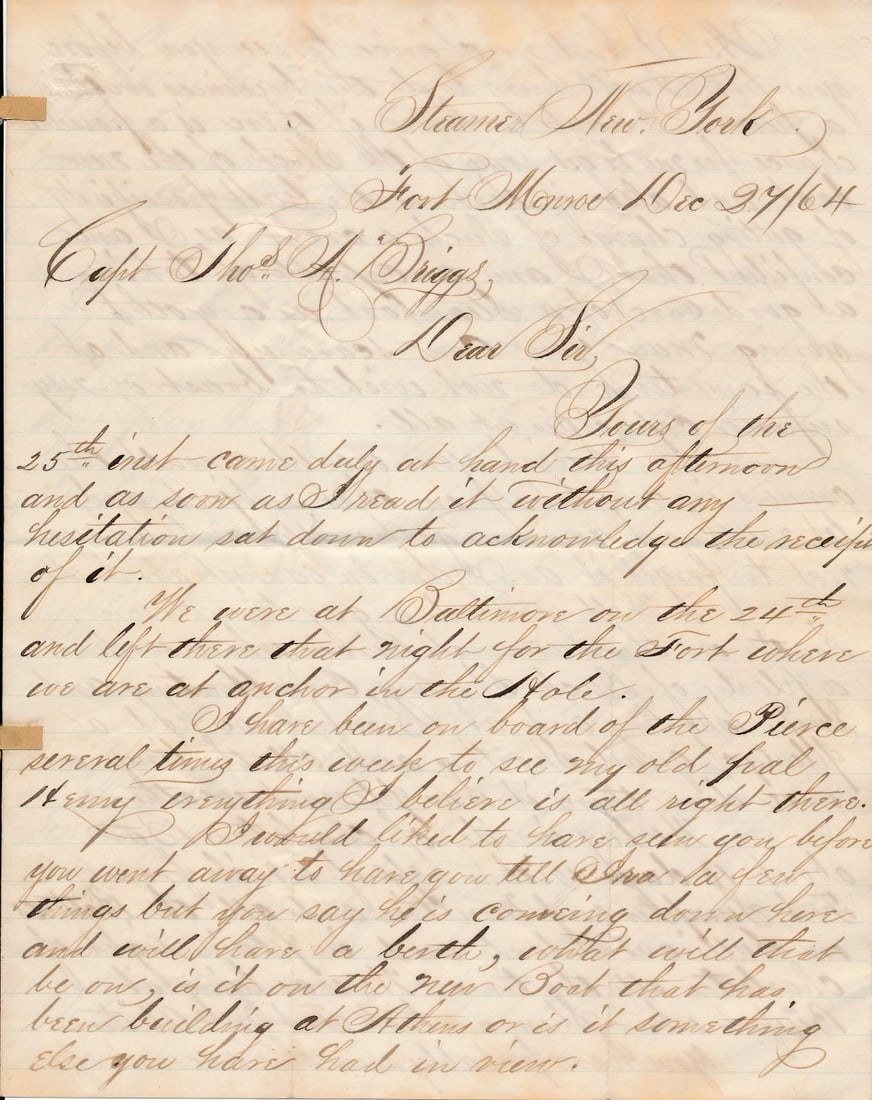 Steamer New York
Fort Monroe Dec 27/64
Capt Thos A. Briggs,
Dear Sir,
Yours of the
25th inst came duly at hand this afternoon
and as soon as I read it without any
hesitation sat down to acknowledge the receipt
of it.
We were at Baltimore on the 24th
and left there that night for the Fort where
we are at anchor in the Hole.
I have been on board of the Pierce
several times this week to see my old pal
Henry everything I believe is all right there.
I would liked to have seen you before
you went away to have you tell Ira a few
things but you say he is comeing down here
and will have a berth, what will that
be on, is it on the new Boat that has
been building at Athens or is it something
else you have had in view.